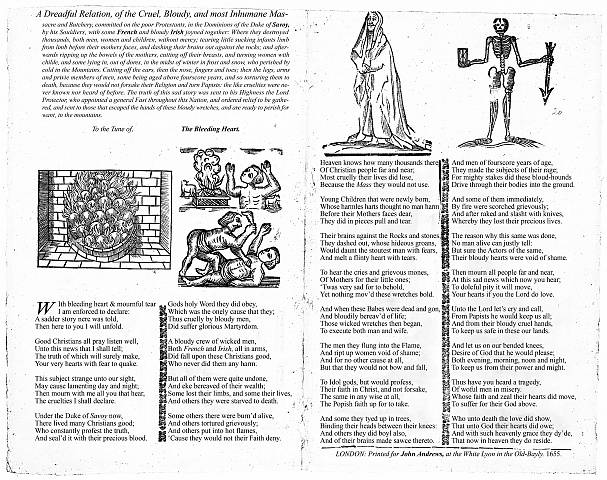 A Dreadful Relation, of the Cruel, Bloudy, and most Inhumane Mas-
sacre and Butchery, committed on the poor Protestants, in the Dominions of the Duke of Savoy,
by his Souldiers, with some French and bloudy Irish joyned together: Where they destroyed
thousands, both men, women and children, without mercy; tearing little sucking infants limb
from limb before their mothers faces, and dashing their brains out against the rocks; and after-
wards ripping up the bowels of the mothers, cutting off their breasts, and turning women with
childe, and some lying in, out of doors, in the midst of winter in frost and snow, who perished by
cold in the Mountains. Cutting off the ears, then the nose, fingers and toes; then the legs, arms
and privie members of men, some being aged above fourscore years, and so torturing them to
death, because they would not forsake their Religion and turn Papists: the like cruelties were ne-
ver known nor heard of before. The truth of this sad story was sent to his Highness the Lord
Protector, who appointed a general Fast throughout this Nation, and ordered relief to be gathe-
red, and sent to those that escaped the hands of these bloudy wretches, and are ready to perish for
want, in the mountains.
To the Tune of, The Bleeding Heart.
WIth bleeding heart & mournful tear
I am enforced to declare:
A sadder story nere was told,
Then here to you I will unfold.
Good Christians all pray listen well,
Unto this news that I shall tell;
The truth of which will surely make,
Your very hearts with fear to quake.
This subject strange unto our sight,
May cause lamenting day and night;
Then mourn with me all you that hear,
The cruelties I shall declare.
Under the Duke of Savoy now,
There lived many Christians good;
Who constantly profest the truth,
And seal'd it with their precious blood.
Gods holy Word they did obey,
Which was the onely cause that they;
Thus cruelly by bloudy men,
Did suffer glorious Martyrdom.
A bloudy crew of wicked men,
Both French and Irish, all in arms,
Did fall upon these Christians good,
Who never did them any harm.
But all of them were quite undone,
And eke bereaved of their wealth;
Some lost their limbs, and some their lives,
And others they were starved to death.
Some others there were burn'd alive,
And others tortured grievously;
And others put into hot flames,
'Cause they would not their Faith deny.
Heaven knows how many thousands there
Of Christian people far and near;
Most cruelly their lives did lose,
Because the Mass they would not use.
Young Children that were newly born,
Whose harmles harts thought no man harm
Before their Mothers faces dear,
They did in pieces pull and tear.
Their brains against the Rocks and stones
They dashed out, whose hideous groans,
Would daunt the stoutest man with fears,
And melt a flinty heart with tears.
To hear the cries and grievous mones,
Of Mothers for their little ones;
'Twas very sad for to behold,
Yet nothing mov'd these wretches bold.
And when these Babes were dead and gon,
And bloudily bereav'd of life;
Those wicked wretches then began,
To execute both man and wife.
The men they flung into the Flame,
And ript up women void of shame;
And for no other cause at all,
But that they would not bow and fall,
To Idol gods, but would profess,
Their faith in Christ, and not forsake,
The same in any wise at all,
The Popish faith up for to take.
And some they tyed up in trees,
Binding their heads between their knees:
And others they did boyl also,
And of their brains made sawce thereto.
And men of fourscore years of age,
They made the subjects of their rage;
For mighty stakes did these bloud-hounds
Drive through their bodies into the ground.
And some of them immediately,
By fire were scorched grievously;
And after raked and slasht with knives,
Whereby they lost their precious lives.
The reason why this same was done,
No man alive can justly tell:
But sure the Actors of the same,
Their bloudy hearts were void of shame.
Then mourn all people far and near,
At this sad news which now you hear;
To doleful pity it will move,
Your hearts if you the Lord do love.
Unto the Lord let's cry and call,
From Papists he would keep us all;
And from their bloudy cruel hands,
To keep us safe in these our lands.
And let us on our bended knees,
Desire of God that he would please;
Both evening, morning, noon and night,
To keep us from their power and might.
Thus have you heard a tragedy,
Of woful men in misery.
Whose faith and zeal their hearts did move,
To suffer for their God above.
Who unto death the love did show,
That unto God their hearts did owe;
And with such heavenly grace they dy'de,
That now in heaven they do reside.
LONDON: Printed for John Andrews, at the White Lyon in the Old-Bayly. 1655.